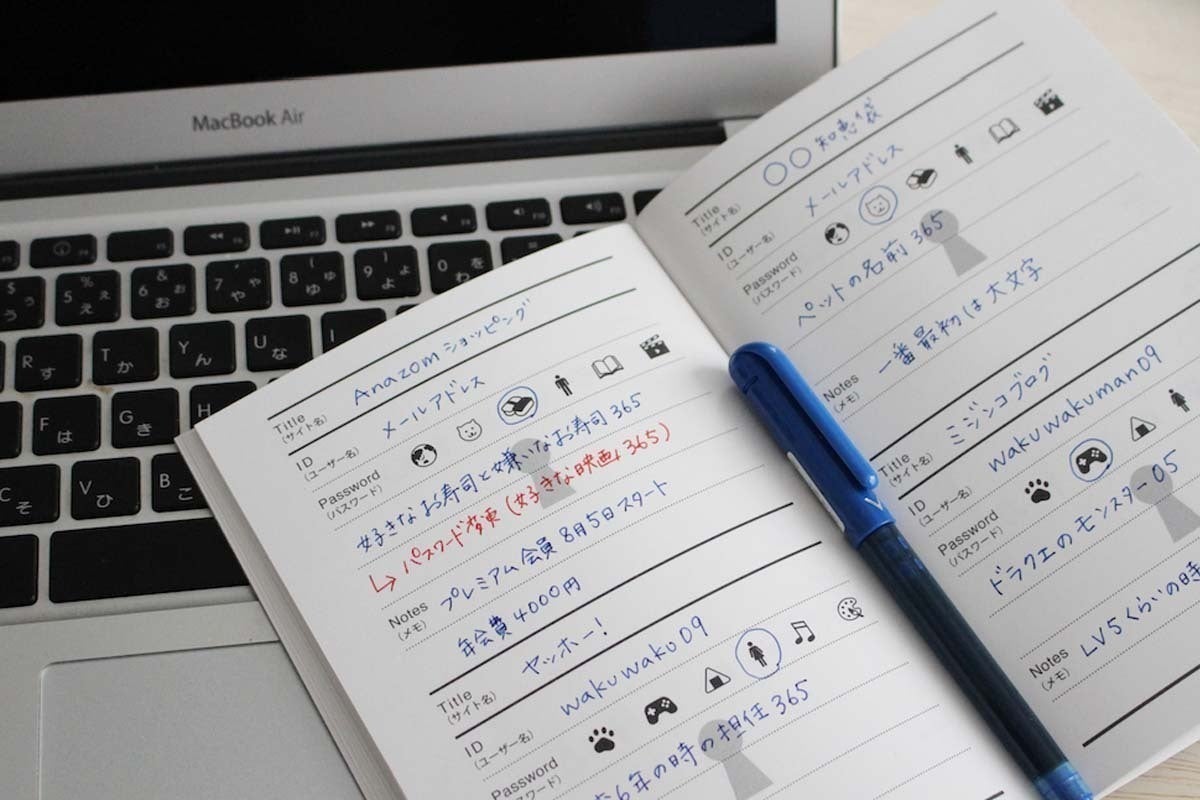 MacBook Air
Title
(サイト名)
Anazom ショッピング
ID
(ユーザー名)
メールアドレス
Password
(パスワード)
好きなお寿司と嫌いなお寿司 365
↳ パスワード変更 (好きな映画, 365)
Notes
(メモ)
プレミアム会員 8月5日スタート
年会費 4000円
Title
(サイト名)
ヤッホー!
ID
(ユーザー名)
wakuwako09
Password
(パスワード)
6年の時の担任 365
Title
(サイト名)
〇〇知恵袋
ID
(ユーザー名)
メールアドレス
Password
(パスワード)
ペットの名前 365
Notes
(メモ)
一番最初は大文字
Title
(サイト名)
ミジンコブログ
ID
(ユーザー名)
wakuwakuman09
Password
(パスワード)
ドラクエのモンスター 05
Notes
(メモ)
LV5くらいの時